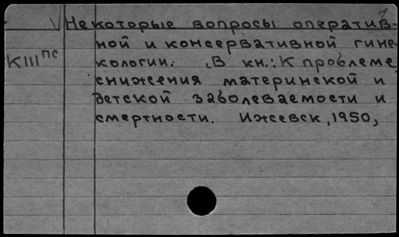 Некоторые вопросы оператив-
ной и консервативной гине-
КIIIпс кологии. В кн.: К проблеме
снижения материнской и
детской заболеваемости и
смертности. Ижевск, 1950,